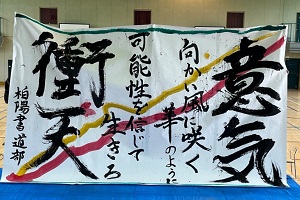 意気
向かい風に咲く
華のように
可能性を信じて
生きろ
衝天
柏陽書道部